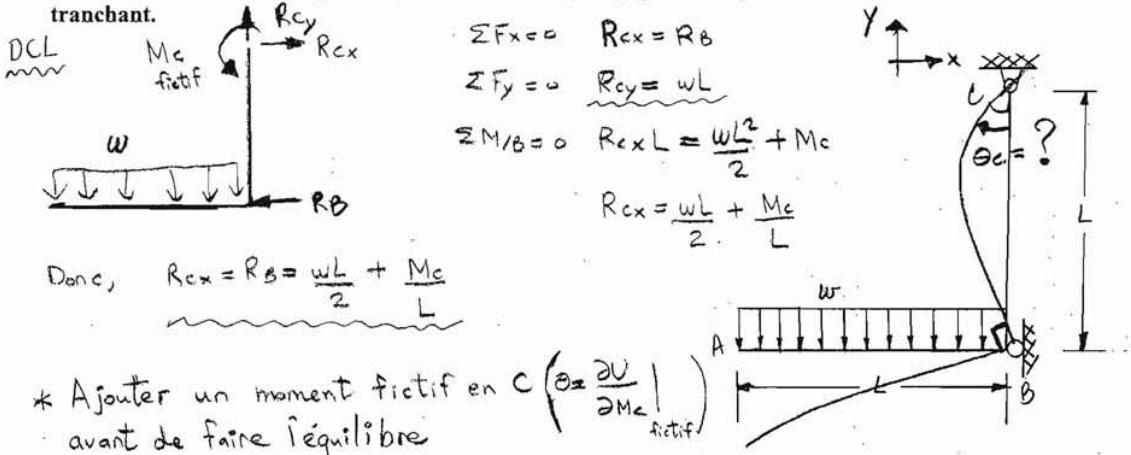 tranchant.
DCL
Mc
fictif
Rcy
Rcx
w
RB
ΣFx=0 Rcx = RB
ΣFy=0 Rcy = wL
ΣM/B=0 RcxL = wL²/2 + Mc
Rcx = wL/2 + Mc/L
Donc, Rcx = RB = wL/2 + Mc/L
* Ajouter un moment fictif en C (θ= ∂U/∂Mc | fictif)
avant de faire l'équilibre
Y
x
C
θc = ?
L
w
A
L
B